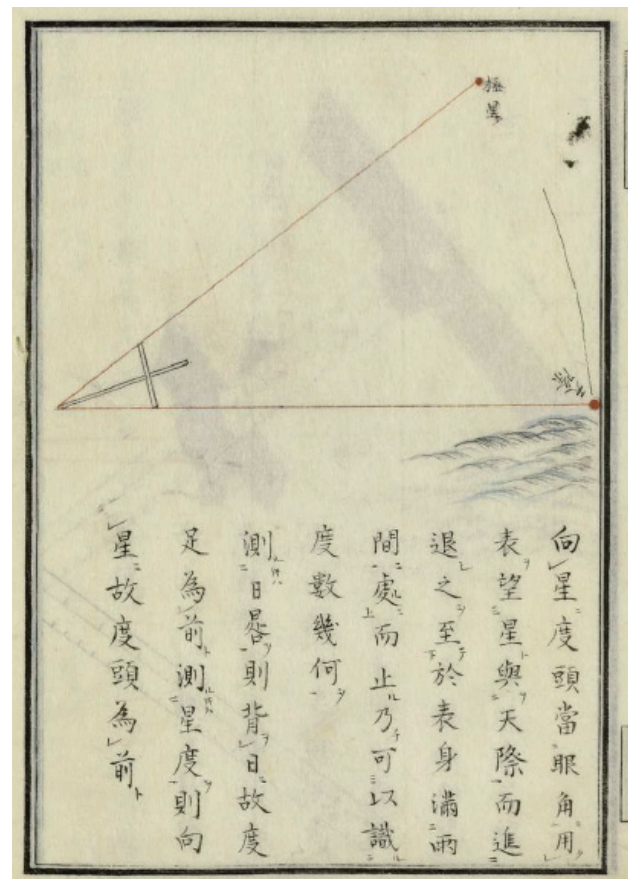 極星
天際
向星度頭當眼角用
表望星與天際而進
退之至於表身滿兩
間處而止乃可以識
度數幾何
測日晷則背日故度
足為前測星度則向
星故度頭為前